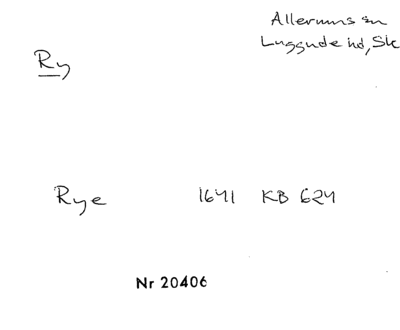 Allerums sn
Luggude hd, Sk
Ry
Rye 1641 KB 624
Nr 20406